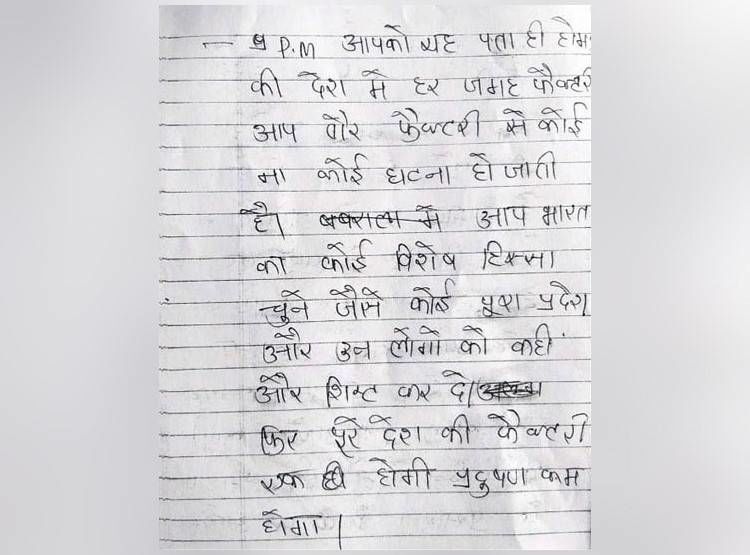 P.M आपको यह पता ही होगा
की देश मे हर जगह फैक्टरी
आप और फैक्टरी से कोई
ना कोई घटना हो जाती
है। में आप भारत
का कोई विशेष हिस्सा
चुने जैसे कोई पूरा प्रदेश
और उन लोगो को कहीं
और शिफ्ट कर दे।
फिर पूरे देश की फैक्टरी
एक ही होगी प्रदुषण कम
होगा।